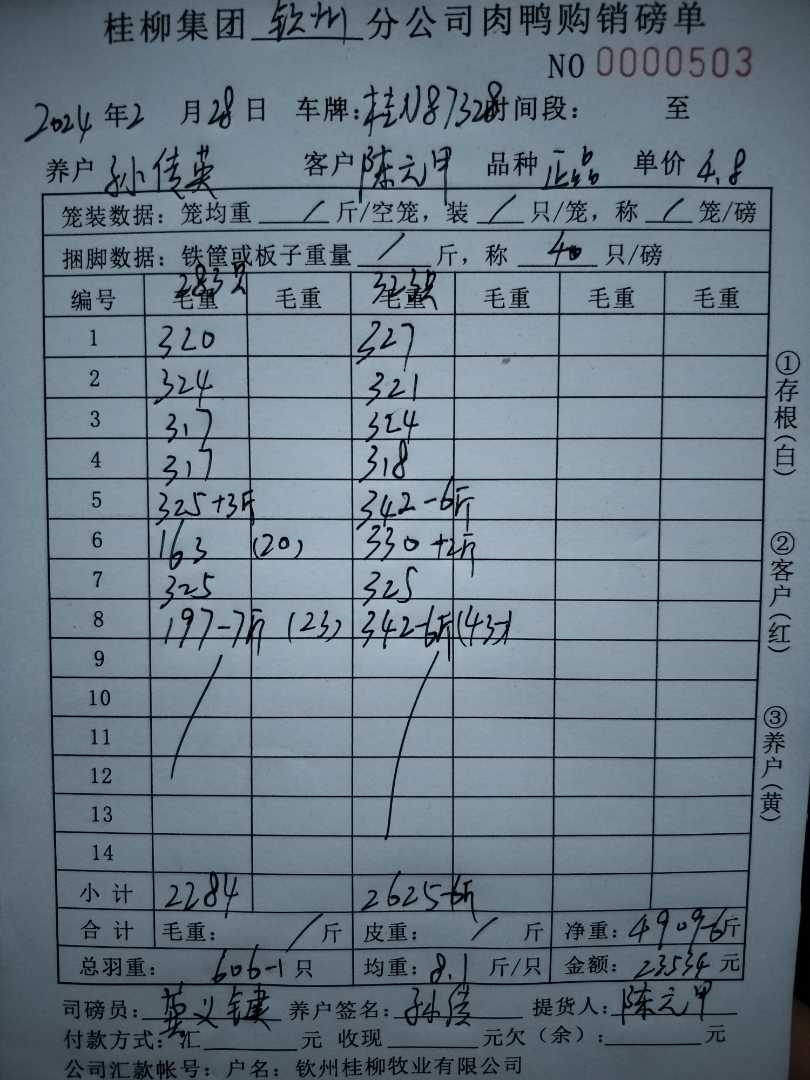 桂柳集团 钦州 分公司肉鸭购销磅单
NO 0000503
2024 年 2 月 28 日 车牌:桂N87328 时间段: 至
养户 孙倩英 客户 陈元甲 品种 正品 单价 4.8
笼装数据: 笼均重 / 斤/空笼, 装 / 只/笼, 称 / 笼/磅
捆脚数据: 铁筐或板子重量 / 斤, 称 40 只/磅
283只 323只
编号 毛重 毛重 毛重 毛重 毛重 毛重
1 320 327
2 324 321
3 317 324
4 317 318
5 325+3斤 342-6斤
6 163 (20) 330+2斤
7 325 325
8 197-7斤 (23) 342-6斤 (43-1
9
10
11
12
13
14
小计 2284 2625-6斤
合计 毛重: / 斤 皮重: / 斤 净重: 4909-6斤
总羽重: 606-1 只 均重: 8.1 斤/只 金额: 23534 元
司磅员: 义键 养户签名: 孙倩 提货人: 陈元甲
付款方式: 汇 元 收现 元欠(余): 元
公司汇款帐号: 户名: 钦州桂柳牧业有限公司
①存根(白)
②客户(红)
③养户(黄)